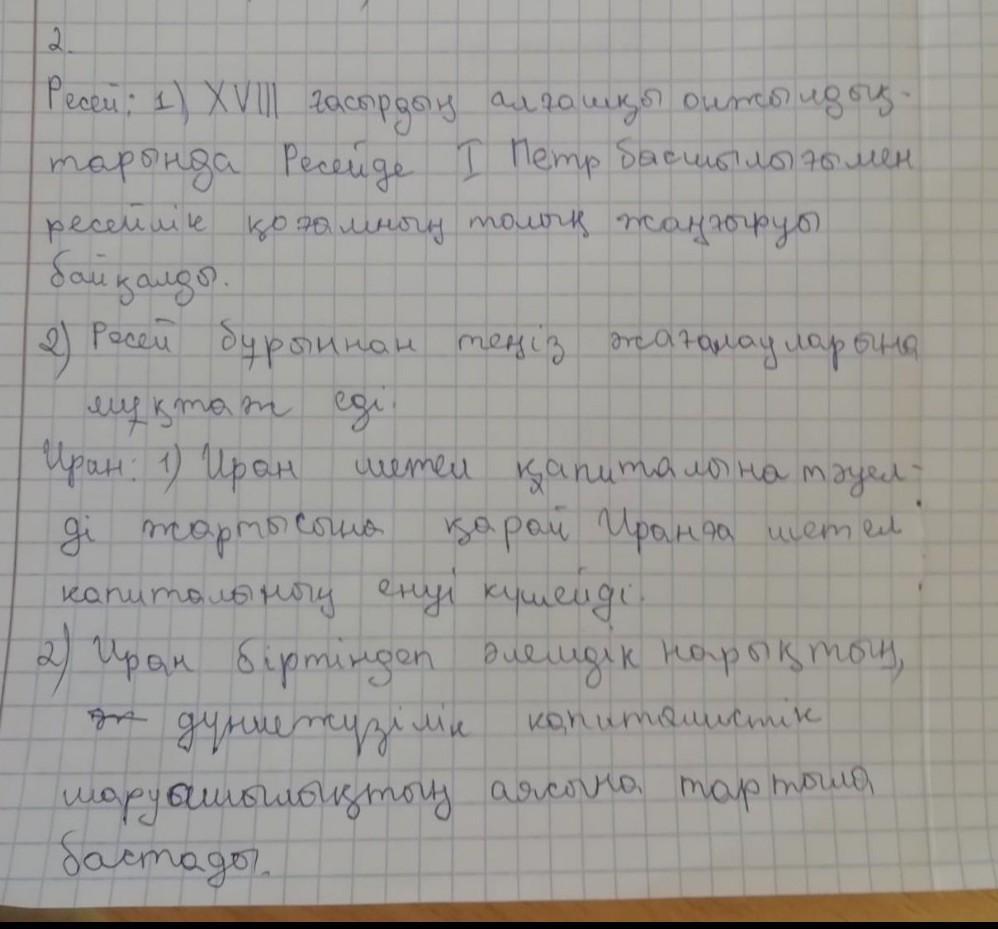 2.
Ресей: 1) XVIII ғасырдың алғашқы онжылдық-
тарында Ресейде I Петр басшылығымен
ресейлік қоғамның толық жаңғыруы
байқалды.
2) Ресей бұрыннан теңіз жағалауларына
мұқтаж еді.
Иран: 1) Иран шетел капиталына тәуел-
ді жартысына қарай Иранда шетел
капиталының енуі күшейді.
2) Иран біртіндеп әлемдік нарықтың,
дүниежүзілік капиталистік
шаруашылықтың аясына тартыла
бастады.